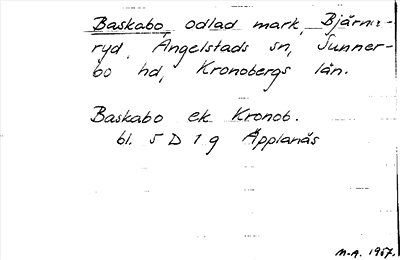 Baskabo, odlad mark, Bjärni-
ryd, Angelstads sn, Sunner-
bo hd, Kronobergs län.
Baskabo ek. Kronob.
bl. 5 D 1 g Äpplanäs
M-A. 1957.